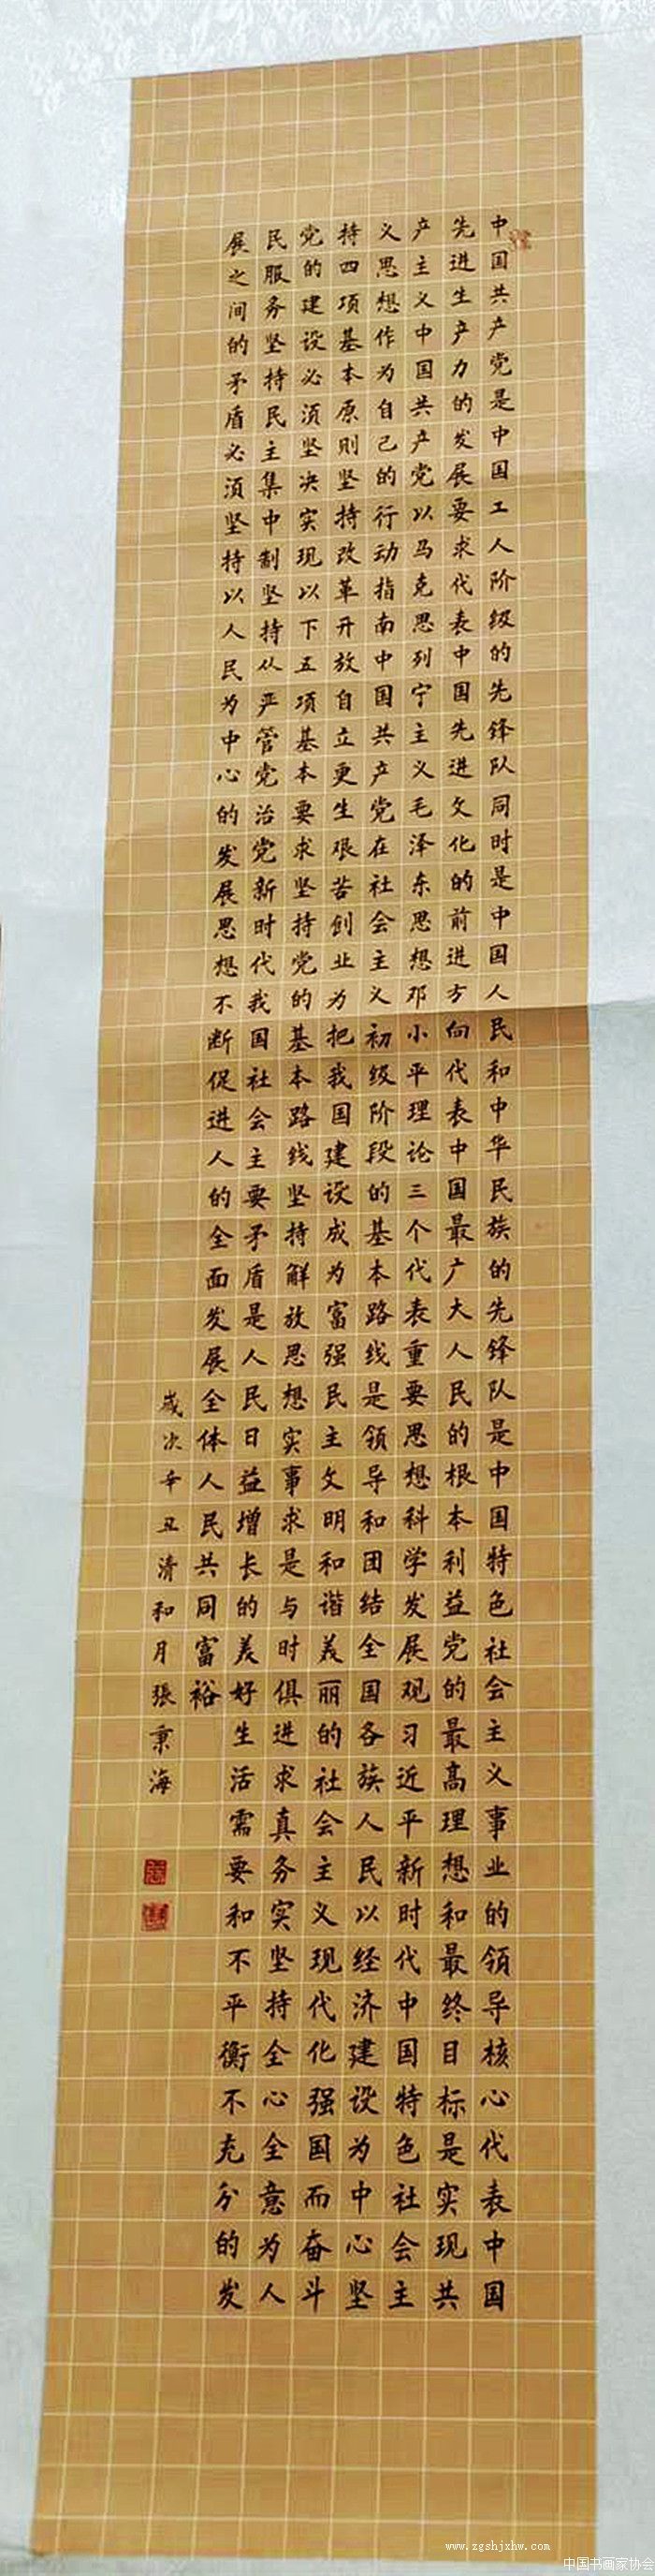 中国共产党是中国工人阶级的先锋队同时是中国人民和中华民族的先锋队是中国特色社会主义事业的领导核心代表中国
先进生产力的发展要求代表中国先进文化的前进方向代表中国最广大人民的根本利益党的最高理想和最终目标是实现共
产主义中国共产党以马克思列宁主义毛泽东思想邓小平理论三个代表重要思想科学发展观习近平新时代中国特色社会主
义思想作为自己的行动指南中国共产党在社会主义初级阶段的基本路线是领导和团结全国各族人民以经济建设为中心坚
持四项基本原则坚持改革开放自立更生艰苦创业为把我国建设成为富强民主文明和谐美丽的社会主义现代化强国而奋斗
党的建设必须坚决实现以下五项基本要求坚持党的基本路线坚持解放思想实事求是与时俱进求真务实坚持全心全意为人
民服务坚持民主集中制坚持从严管党治党新时代我国社会主要矛盾是人民日益增长的美好生活需要和不平衡不充分的发
展之间的矛盾必须坚持以人民为中心的发展思想不断促进人的全面发展全体人民共同富裕
歲次辛丑清和月張秉海
www.zgshjxhw.com
中国书画家协会